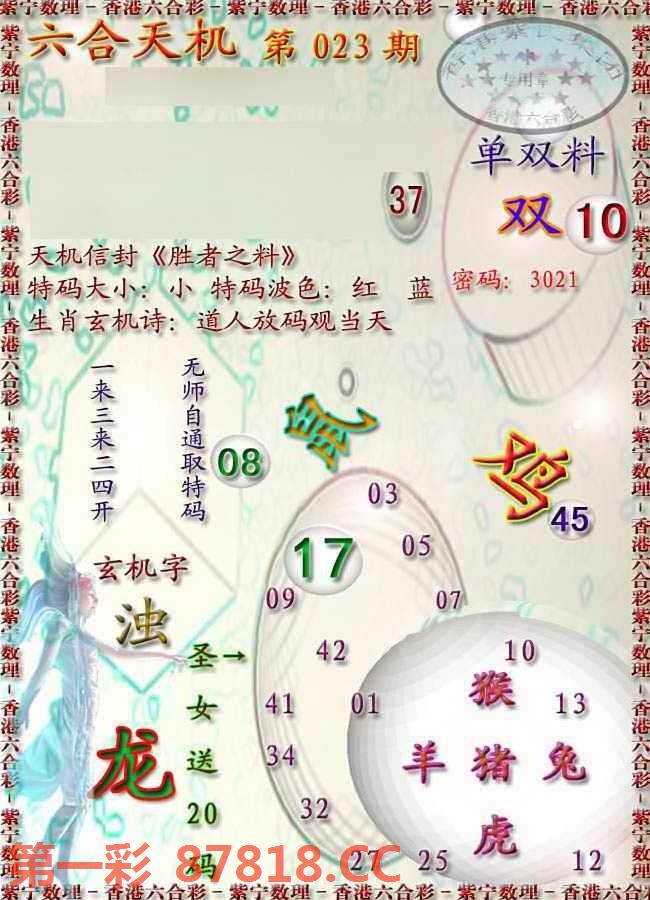 紫宁数理－香港六合彩－紫宁数理－香港六合彩－紫宁数理－香港六合彩－紫宁数理
六合天机 第 023 期
专用章
香港六合彩
单双料
37
双 10
天机信封《胜者之料》
特码大小：小 特码波色：红 蓝
密码：3021
生肖玄机诗：道人放码观当天
一来三来二四开
无师自通取特码
08
鼠
鸡
45
03
17
05
玄机字
浊
09
07
圣→
女
送
20
码
42
10
猴
41
01
13
龙
羊 猪 兔
34
32
虎
27
25
12
第一彩 87818.CC
紫宁数理－香港六合彩－紫宁数理－香港六合彩－紫宁数理－香港六合彩